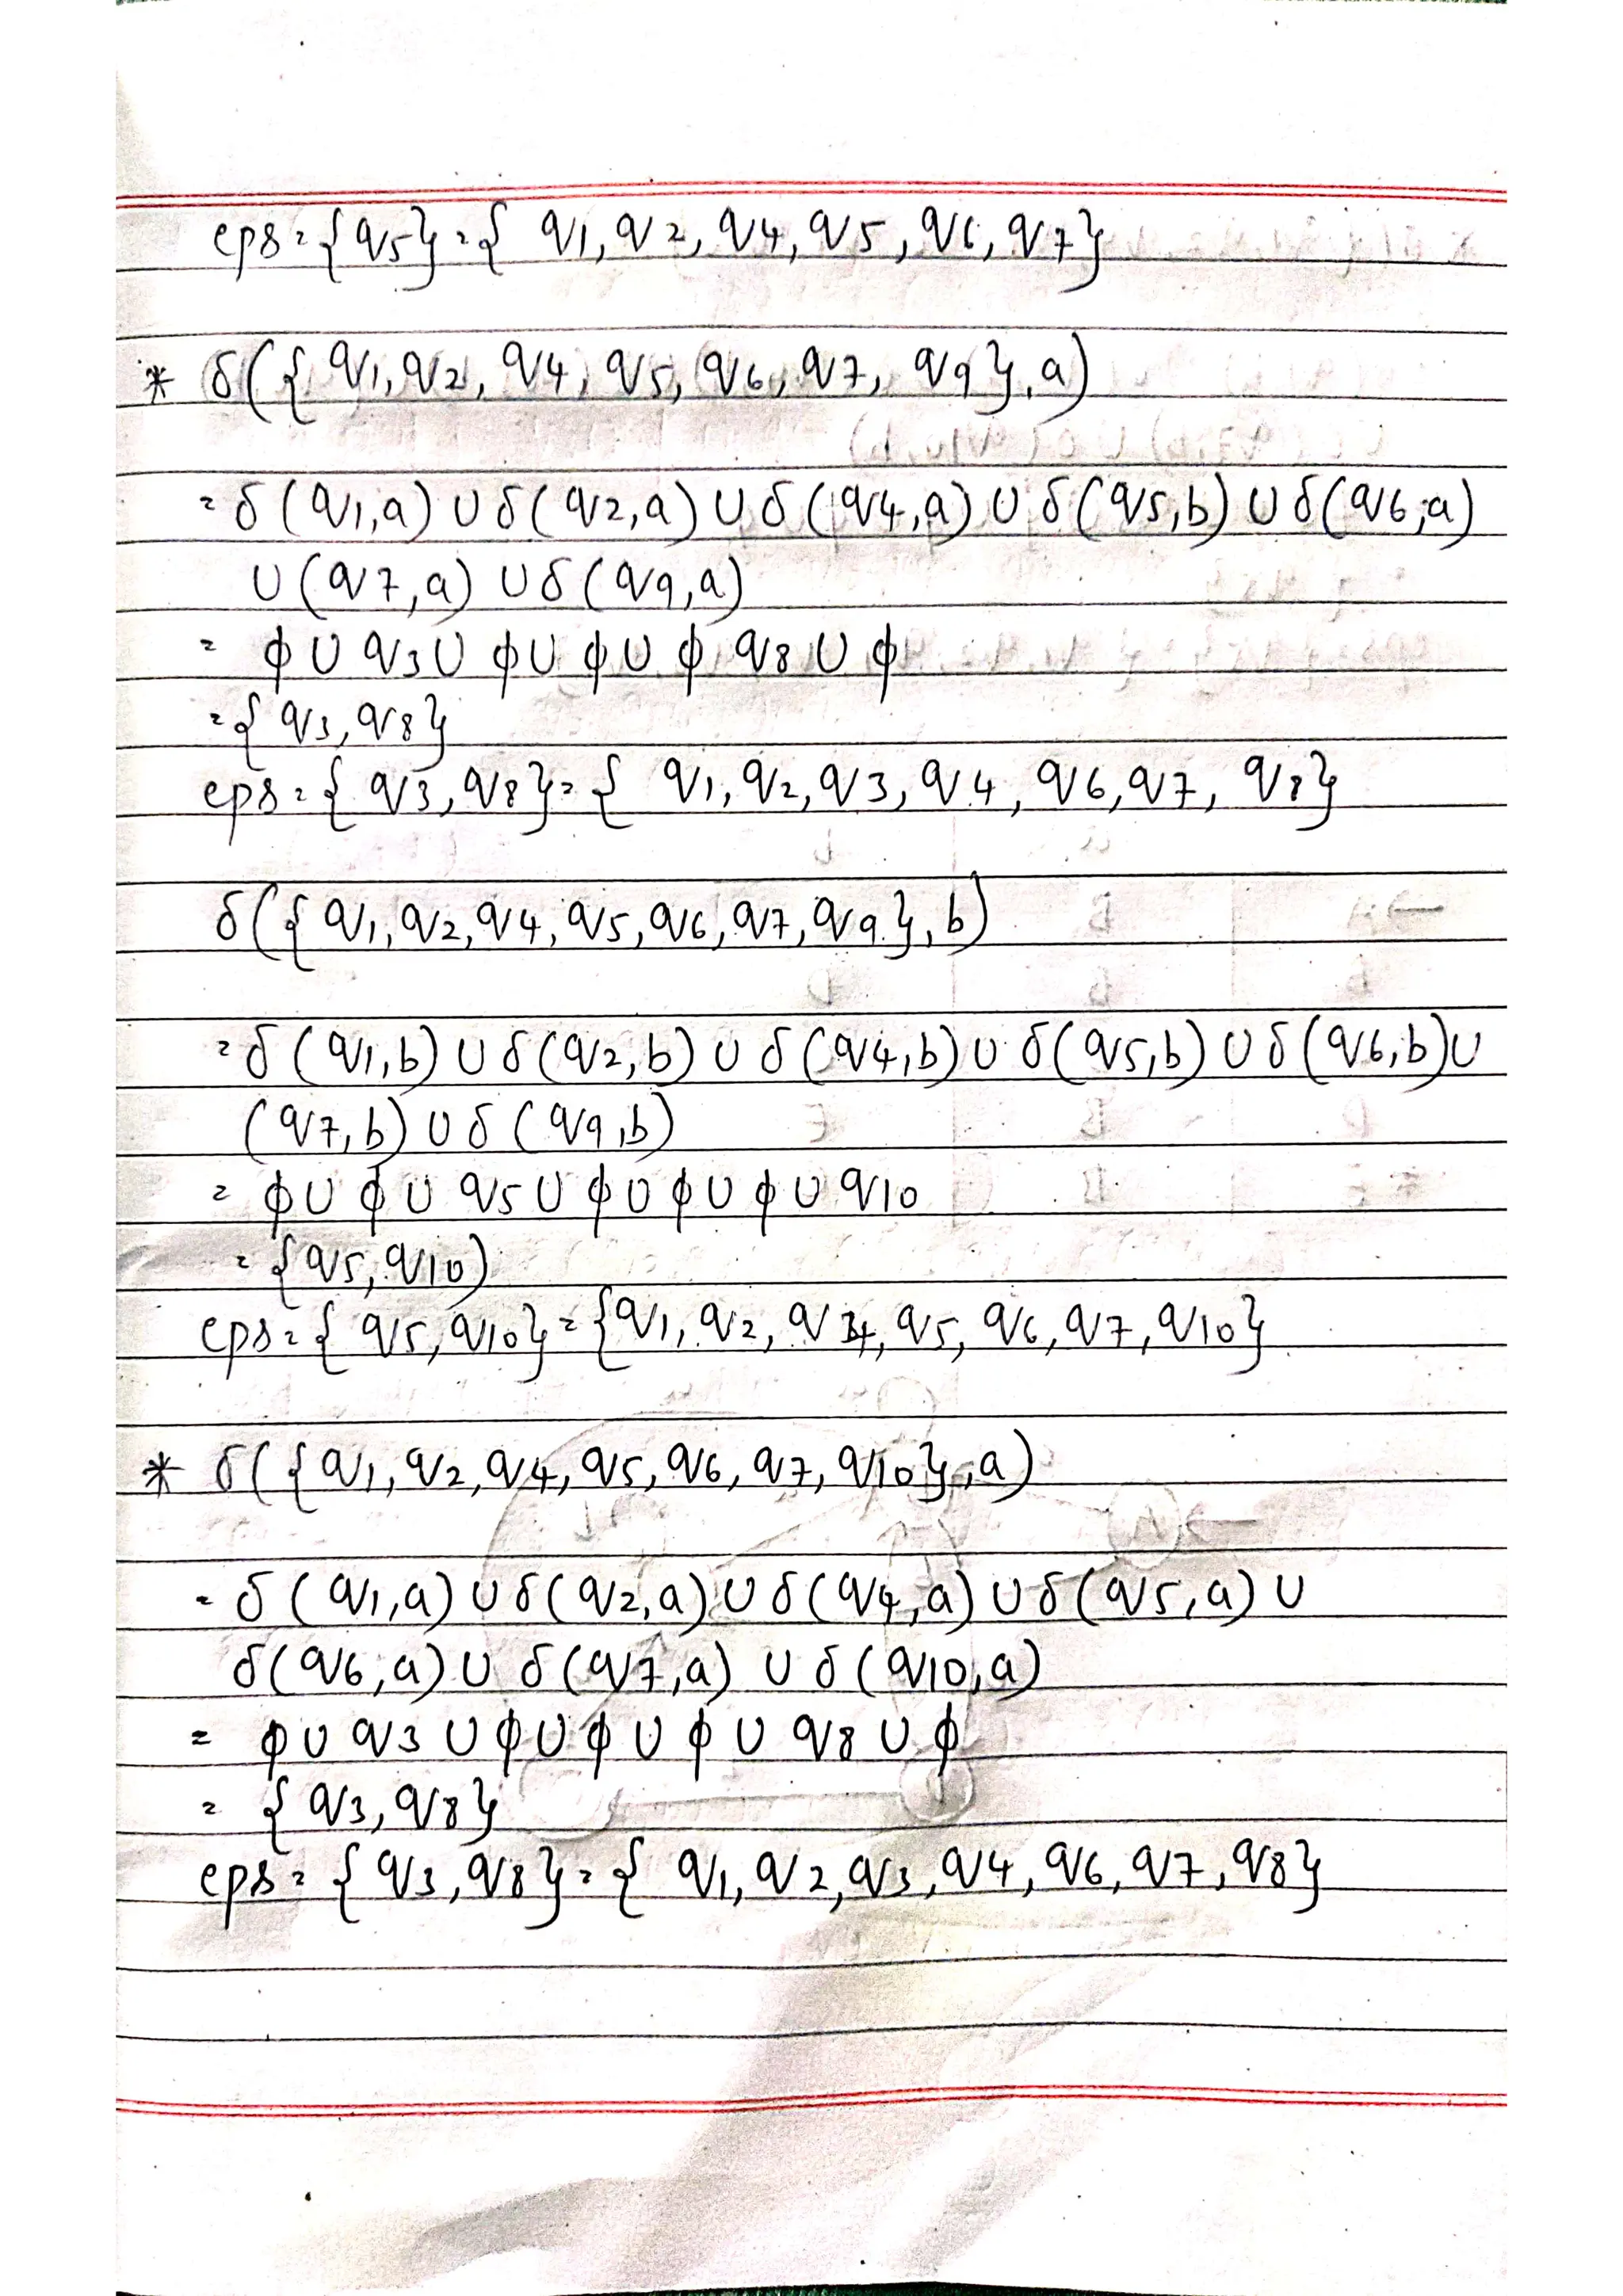 eps = {q5} = { q1, q2, q4, q5, q6, q7}
* δ({ q1, q2, q4, q5, q6, q7, q9 }, a)
= δ(q1,a) ∪ δ(q2,a) ∪ δ(q4,a) ∪ δ(q5,b) ∪ δ(q6,a)
∪ (q7,a) ∪ δ(q9,a)
= ϕ ∪ q3 ∪ ϕ ∪ ϕ ∪ ϕ q8 ∪ ϕ
= { q3, q8}
eps = { q3, q8} = { q1, q2, q3, q4, q6, q7, q8}
δ({ q1, q2, q4, q5, q6, q7, q9 }, b)
= δ(q1,b) ∪ δ(q2,b) ∪ δ(q4,b) ∪ δ(q5,b) ∪ δ(q6,b) ∪
(q7,b) ∪ δ(q9,b)
= ϕ ∪ ϕ ∪ q5 ∪ ϕ ∪ ϕ ∪ ϕ ∪ q10
= {q5, q10)
eps = { q5, q10} = {q1, q2, q4, q5, q6, q7, q10}
* δ({ q1, q2, q4, q5, q6, q7, q10}, a)
= δ(q1,a) ∪ δ(q2,a) ∪ δ(q4,a) ∪ δ(q5,a) ∪
δ(q6,a) ∪ δ(q7,a) ∪ δ(q10,a)
= ϕ ∪ q3 ∪ ϕ ∪ ϕ ∪ ϕ ∪ q8 ∪ ϕ
= { q3, q8}
eps = { q3, q8} = { q1, q2, q3, q4, q6, q7, q8}